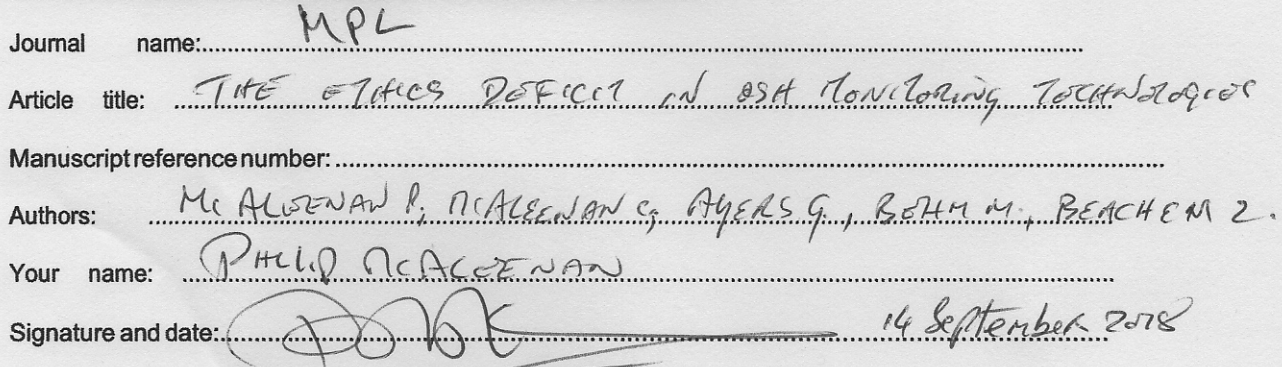 Journal name: MPL
Article title: THE ETHICS DEFICIT IN OSH MONITORING TECHNOLOGIES
Manuscript reference number:
Authors: McALEENAN P., McALEENAN C., AYERS G., BEHM M., BEACHEM Z.
Your name: PHILIP McALEENAN
Signature and date: 14 September 2018